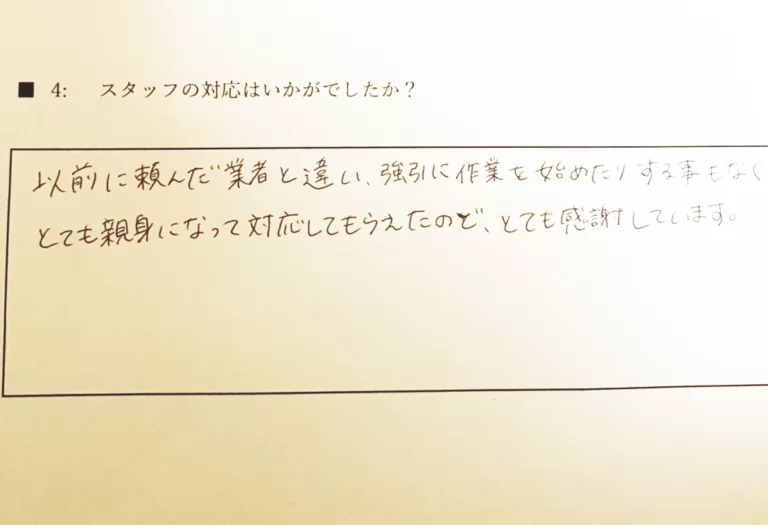 ■ 4: スタッフの対応はいかがでしたか？
以前に頼んだ業者と違い、強引に作業を始めたりする事もなく
とても親身になって対応してもらえたので、とても感謝しています。